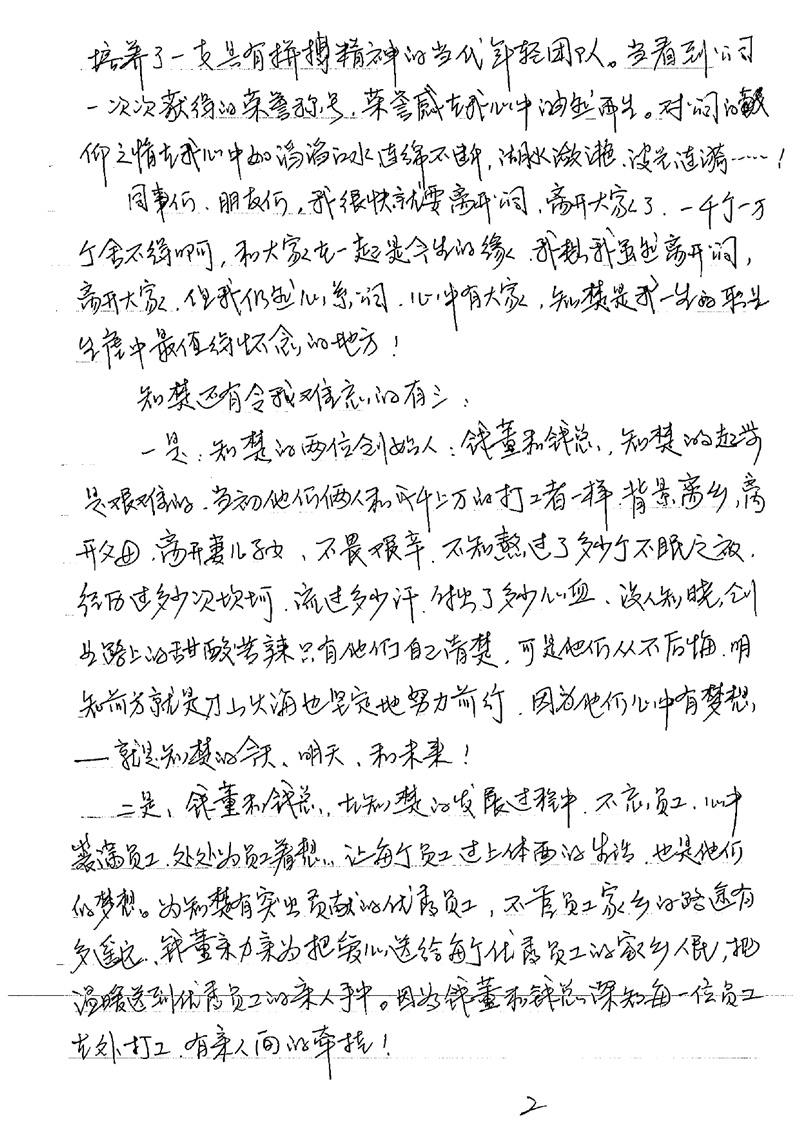 培养了一支具有拼搏精神的当代年轻团队。当看到公司
一次次获得的荣誉称号,荣誉感在我心中油然而生。对公司的敬
仰之情在我心中如滔滔江水连绵不断,湖水潋滟、波光涟漪……!
同事们、朋友们,我很快就要离开公司,离开大家了,一千个一万
个舍不得啊,和大家在一起是今生的缘,我想我虽然离开公司,
离开大家,但我仍然心系公司,心中有大家,知楚是我一生的职业
生涯中最值得怀念的地方!
知楚还有令我难忘的有三:
一是:知楚的两位创始人:钱董和钱总,知楚的起步
是艰难的,当初他们俩人和成千上万的打工者一样,背景离乡,离
开父母,离开妻儿子女,不畏艰辛,不知熬过了多少个不眠之夜,
经历过多少次坎坷,流过多少汗,付出了多少心血,没人知晓,创
业路上的甜酸苦辣只有他们自己清楚,可是他们从不后悔,明
知前方就是刀山火海也坚定地努力前行,因为他们心中有梦想,
——就是知楚的今天、明天、和未来!
二是、钱董和钱总,在知楚的发展过程中,不忘员工,心中
装满员工,处处为员工着想,让每个员工过上体面的生活,也是他们
的梦想。为知楚有突出贡献的优秀员工,不管员工家乡的路途有
多遥远,钱董亲力亲为把爱心送给每个优秀员工的家乡人民,把
温暖送到优秀员工的亲人手中。因为钱董和钱总深知每一位员工
在外打工,有亲人间的牵挂!
2